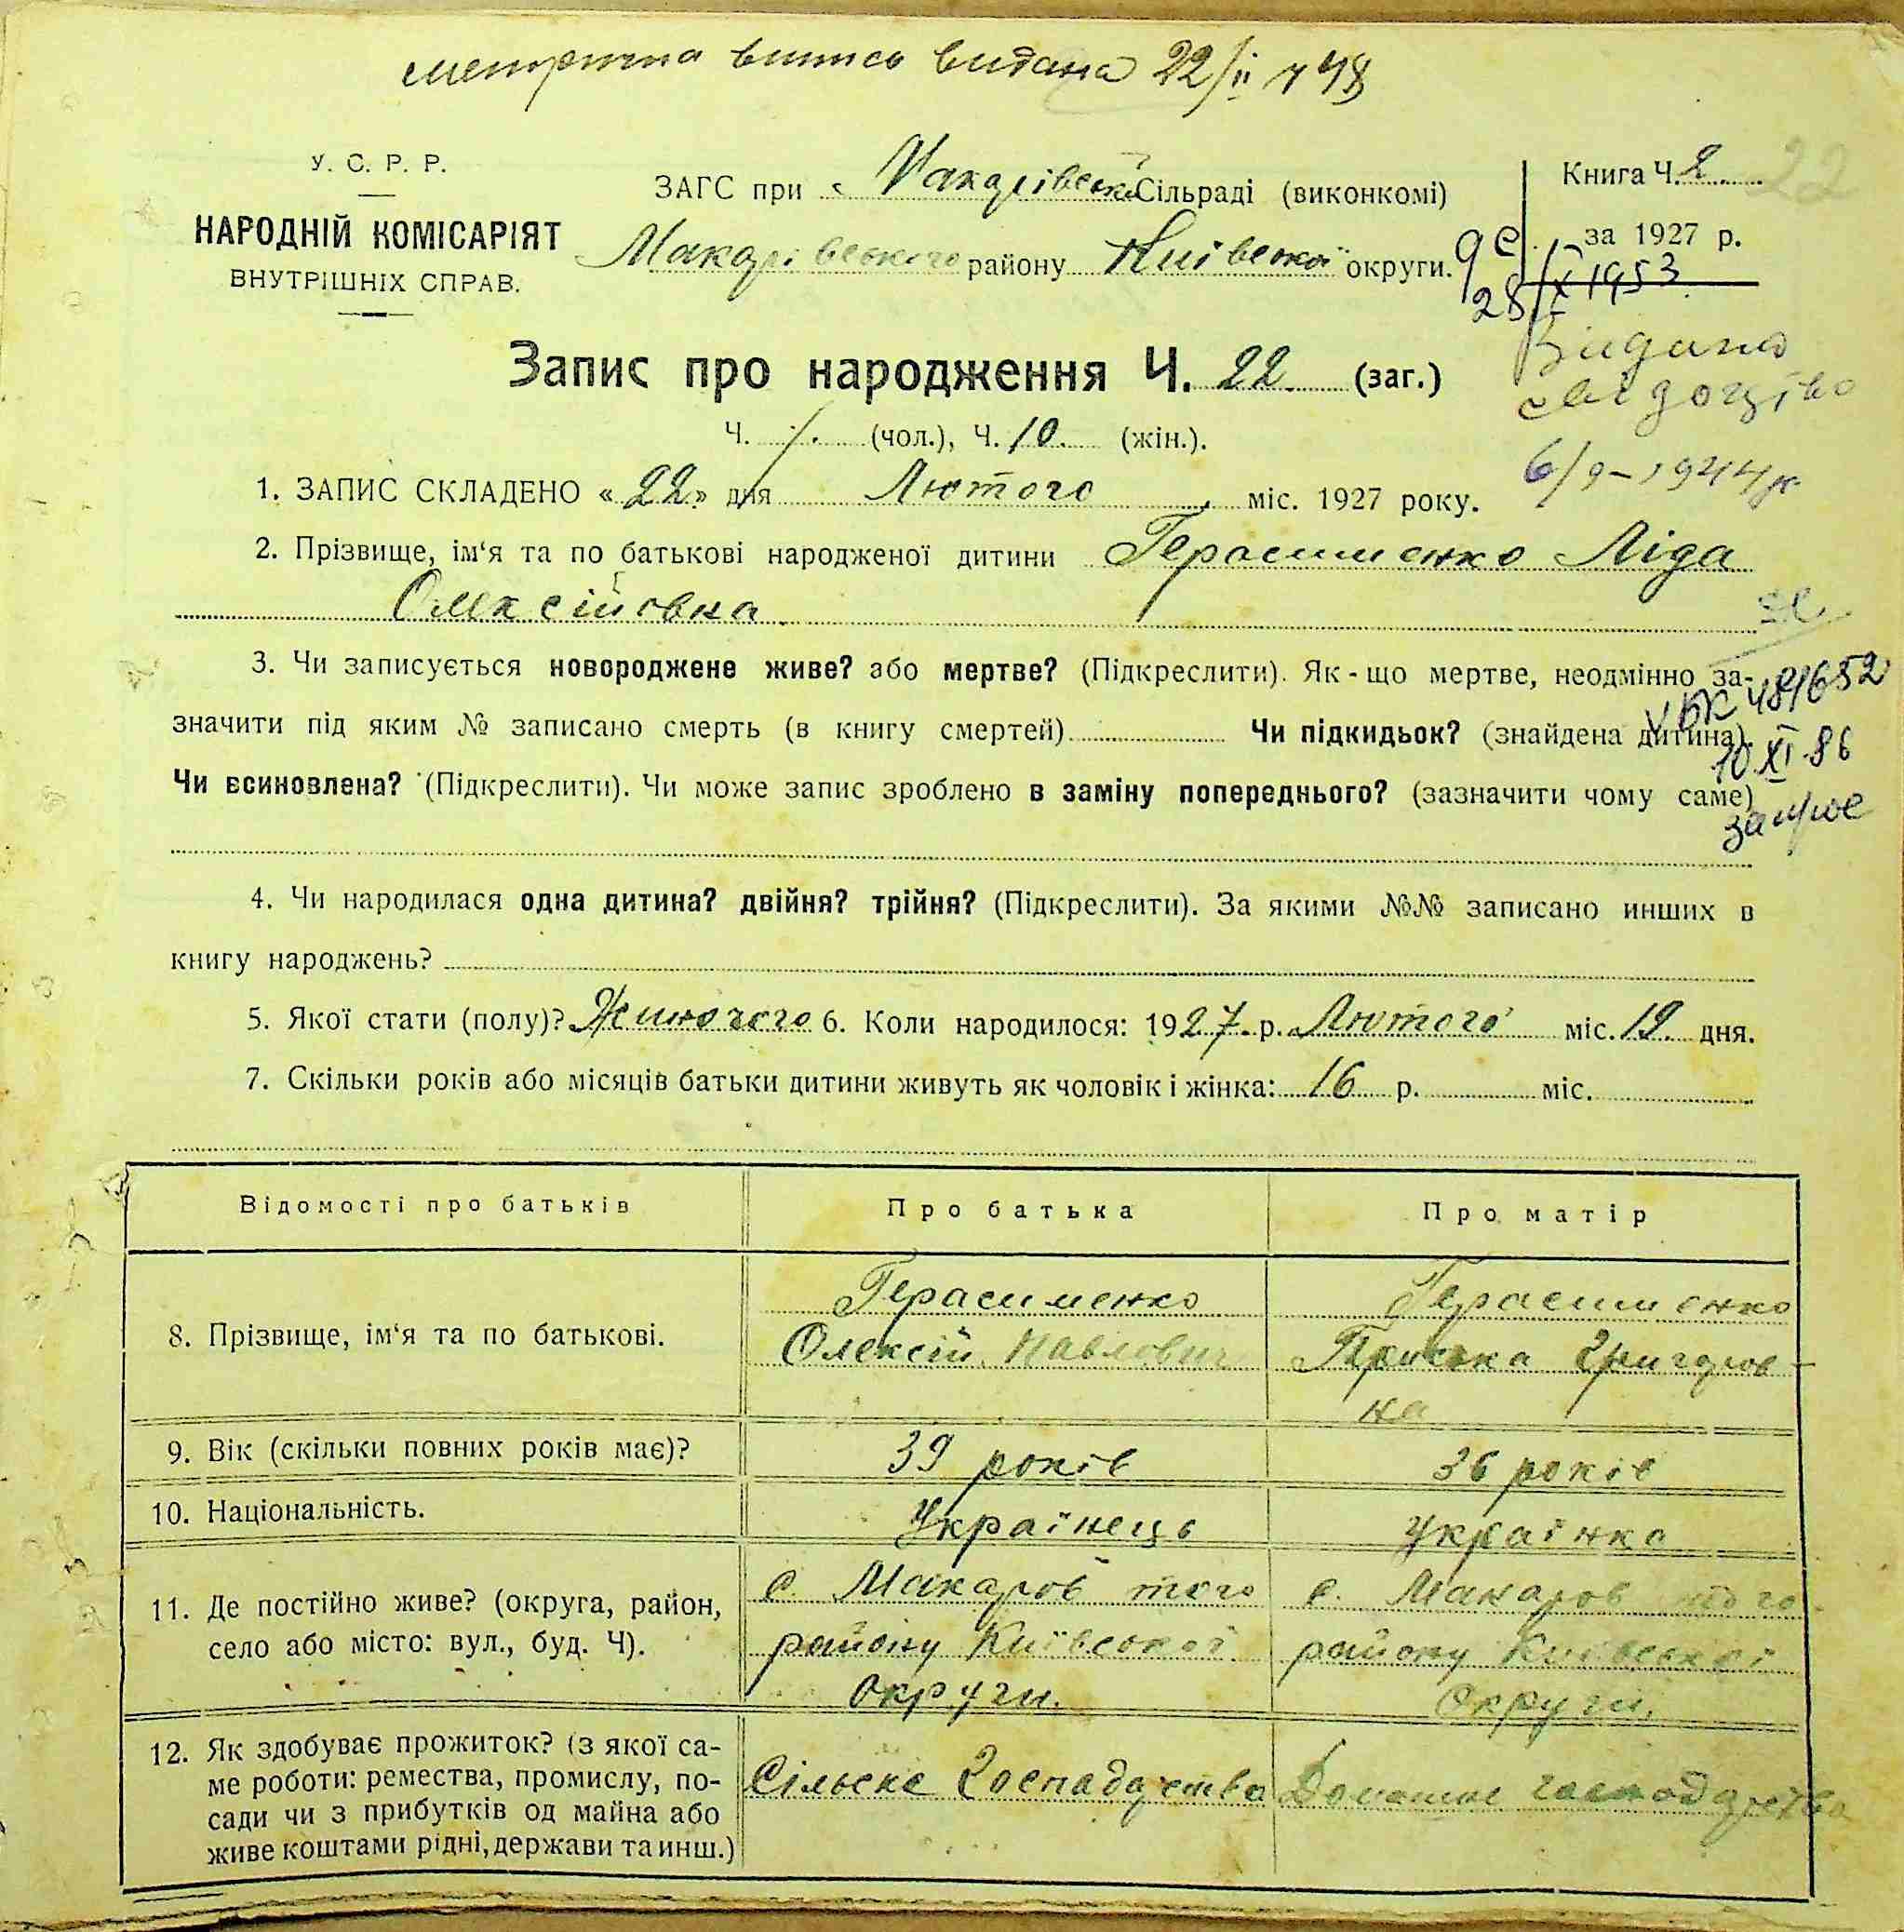 метрична випись видана 22/ІІ 48
У. С. Р. Р.
НАРОДНІЙ КОМІСАРІЯТ
ВНУТРІШНІХ СПРАВ.
ЗАГС при с. Макарівській Сільраді (виконкомі)
Макарівського району Київської округи.
Книга Ч. 2
22
за 1927 р.
28/X 1953
Видана
свідоцтво
6/9-1944 р
Запис про народження Ч. 22 (заг.)
Ч. / (чол.), Ч. 10. (жін.).
1. ЗАПИС СКЛАДЕНО «22» дня Лютого міс. 1927 року.
2. Прізвище, ім‘я та по батькові народженої дитини Герасименко Ліда
Олексійовна
3. Чи записується новороджене живе? або мертве? (Підкреслити). Як-що мертве, неодмінно за-
значити під яким № записано смерть (в книгу смертей) Чи підкидьок? (знайдена дитина).
Чи всиновлена? (Підкреслити). Чи може запис зроблено в заміну попереднього? (зазначити чому саме)
V БК 481652
10.XI.86
4. Чи народилася одна дитина? двійня? трійня? (Підкреслити). За якими №№ записано инших в
книгу народжень?
5. Якої стати (полу)? Жиночого 6. Коли народилося: 1927 р. Лютого міс. 19 дня.
7. Скільки років або місяців батьки дитини живуть як чоловік і жінка: 16 р. міс.
Відомості про батьків Про батька Про матір
8. Прізвище, ім‘я та по батькові.
Герасименко
Олексій Павлович
Герасименко
Приська Григоров-
на
9. Вік (скільки повних років має)? 39 років 36 років
10. Національність. Українець Українка
11. Де постійно живе? (округа, район,
село або місто: вул., буд. Ч).
с. Макаров того
району Київської
округи.
с. Макаров того
району Київської
округи.
12. Як здобуває прожиток? (з якої са-
ме роботи: ремества, промислу, по-
сади чи з прибутків од майна або
живе коштами рідні, держави та инш.)
Сільске господарство
Домашнє господарство